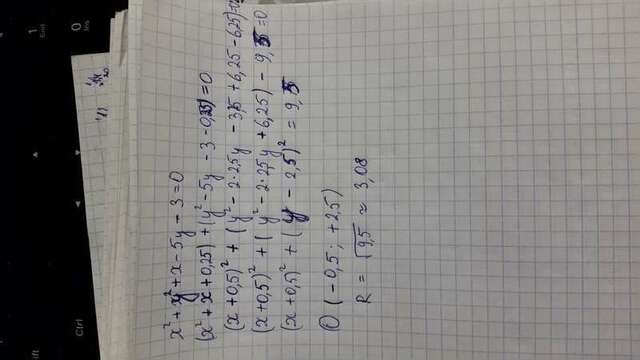 x² + y² + x - 5y - 3 = 0
(x² + x + 0,25) + (y² - 5y - 3 - 0,25) = 0
(x + 0,5)² + (y² - 2·2,5y - 3,5 + 6,25 - 6,25) =
(x + 0,5)² + (y² - 2·2,5y + 6,25) - 9,5 = 0
(x + 0,5)² + (y - 2,5)² = 9,5
O (-0,5 ; +2,5)
R = √9,5 ≈ 3,08
Ctrl